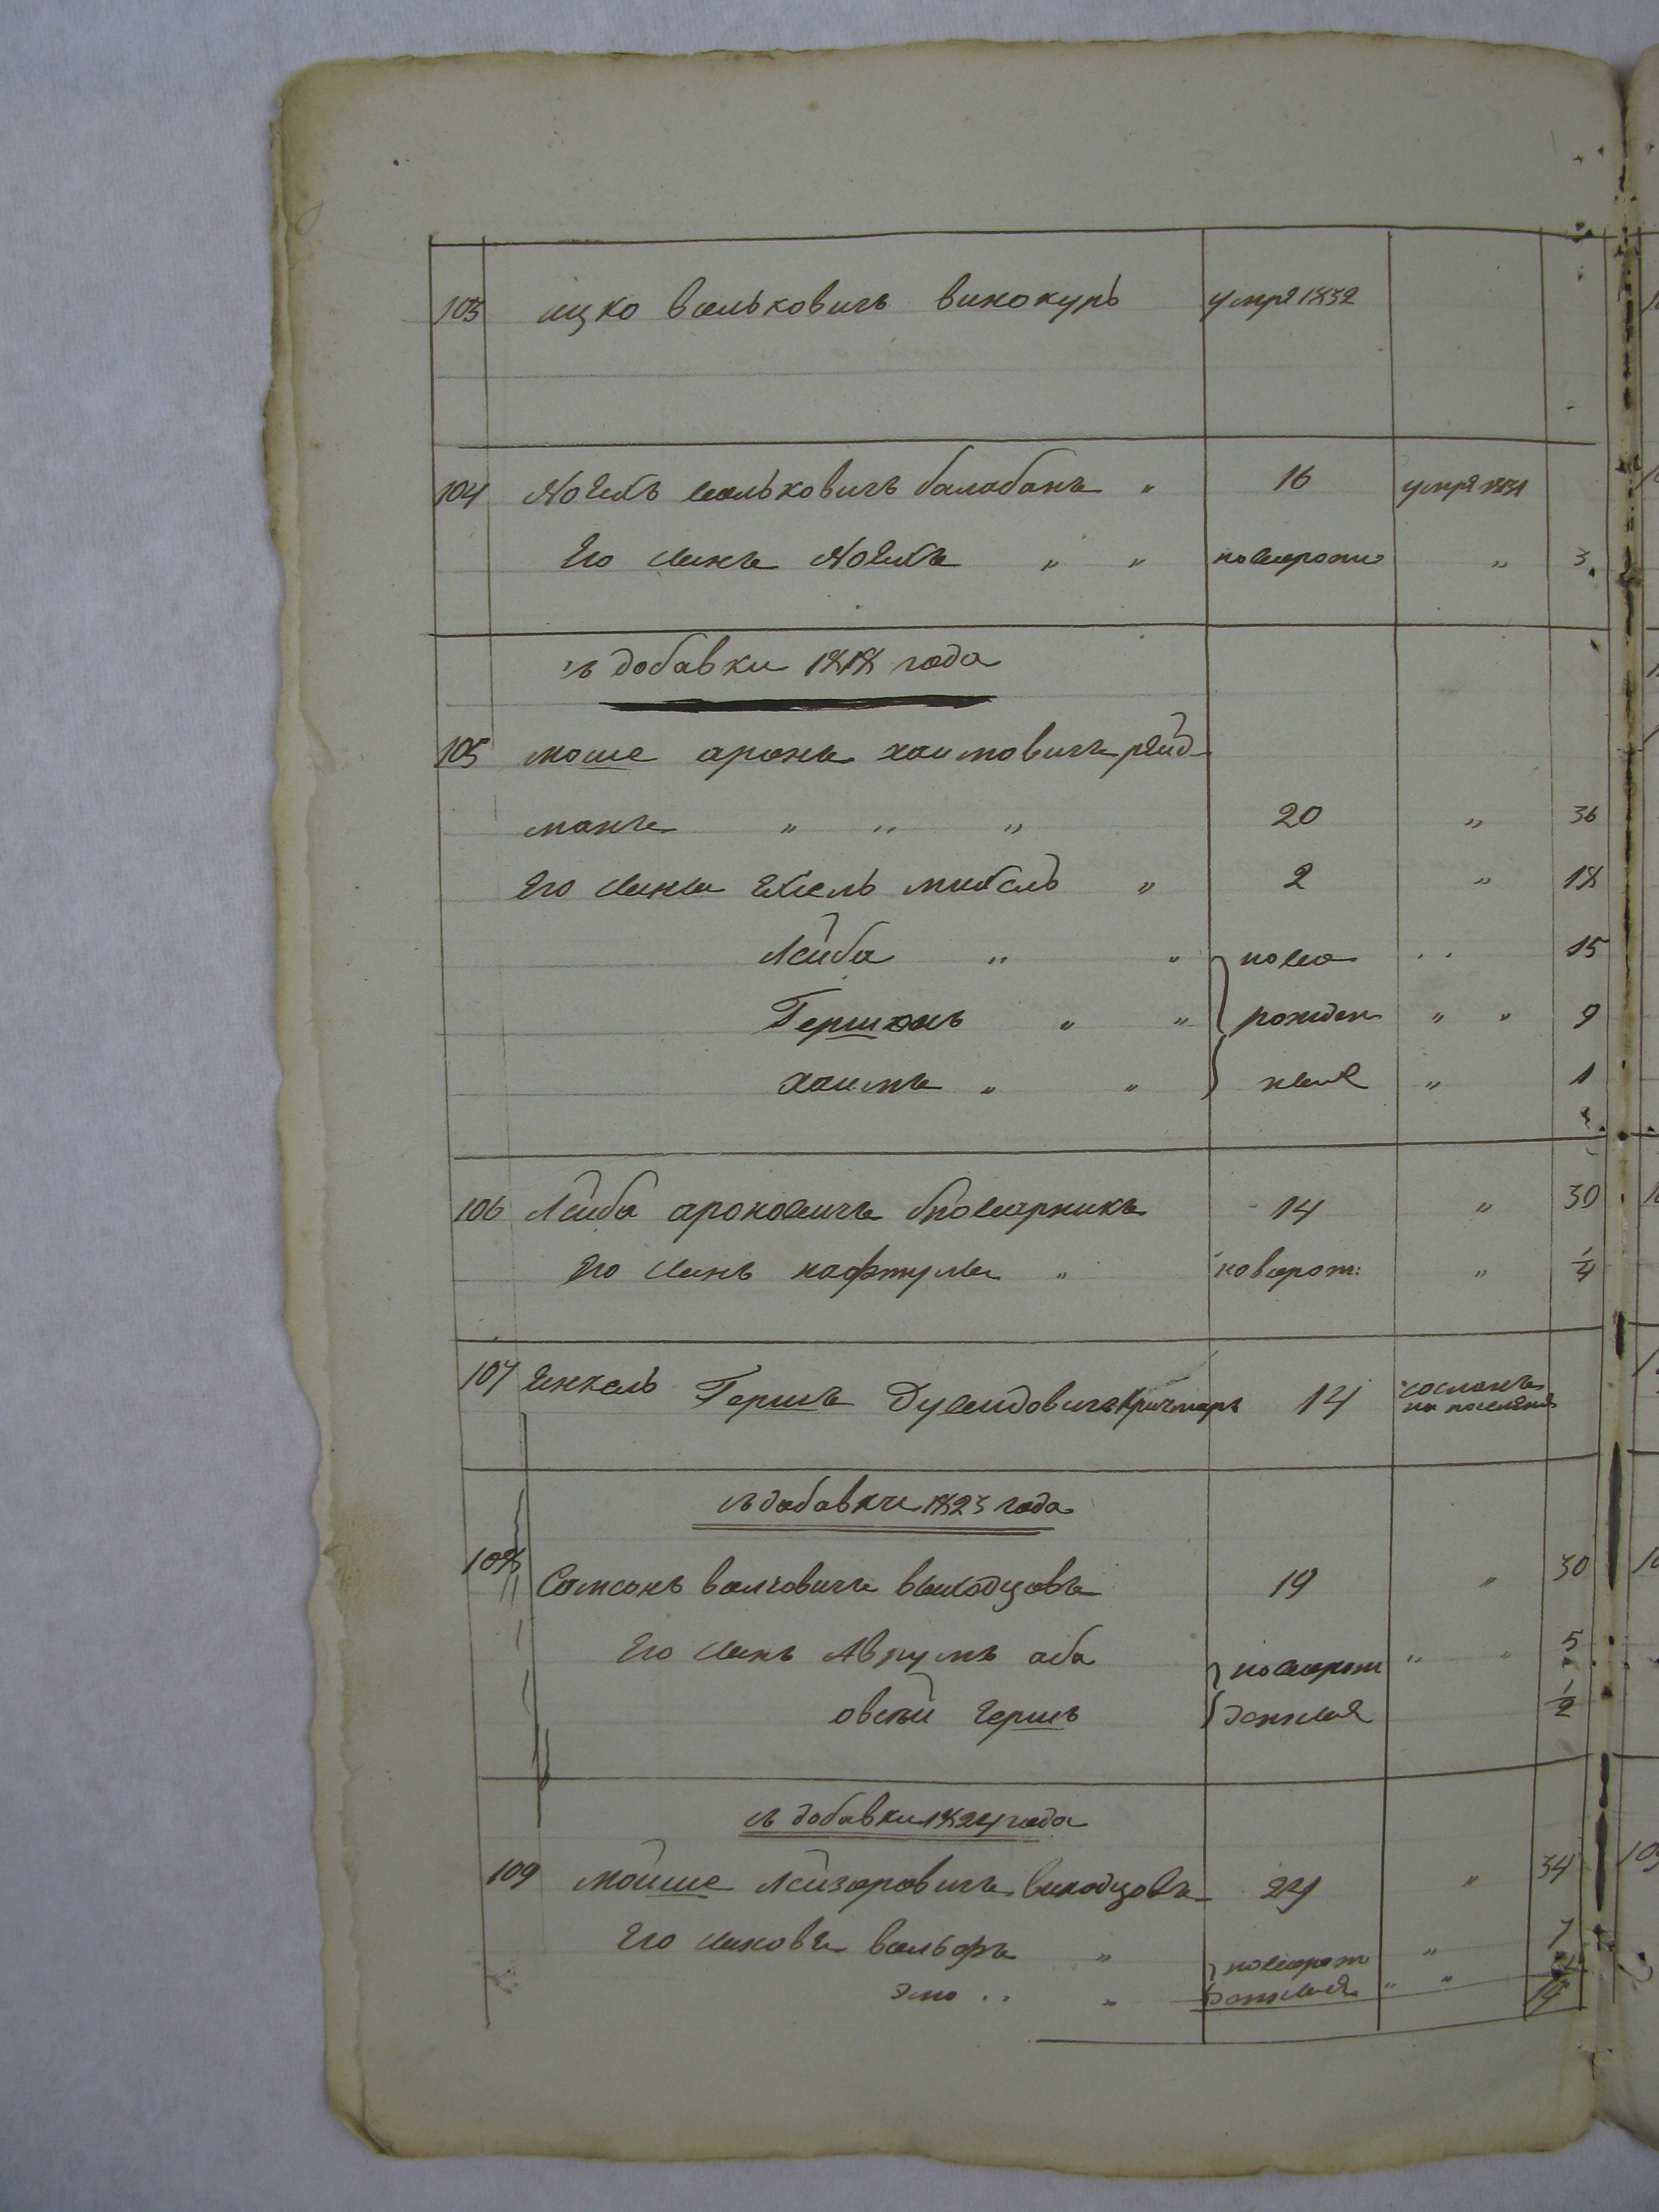 103 ицко вольковичъ винокуръ умре 1832
104 Хоимъ Вольковичъ балабанъ " 16 умре 1831
Его Синъ " " новорожд " 3
съ добавки 1818 года
105 моше аронъ хаимовичъ рейд
манъ " " " 20 " 36
Его Сины Ехиель михель " 2 " 18
Лейба " " новo " " 15
Гершонъ " " рожден " " 9
хаимъ " " ные " 1
106 Лейба ароновичъ 14 " 30
Его Синъ нафтула " новорож: " 1/4
107 Янкель Гершъ Дувидовичъ Кричмаръ 14 сосланъ на поселение
съ добавки 1823 года
108 Самсонъ волковичъ виходцовъ 19 " 30
Его Синъ Аврумъ аба новорож " " 5
овсей Гершъ денные 1/2
съ добавки 1824 года
109 мойше Лейзоровичъ виходцовъ 24 " 34
Его Синове вольфъ " новорож " 7
" денные " "